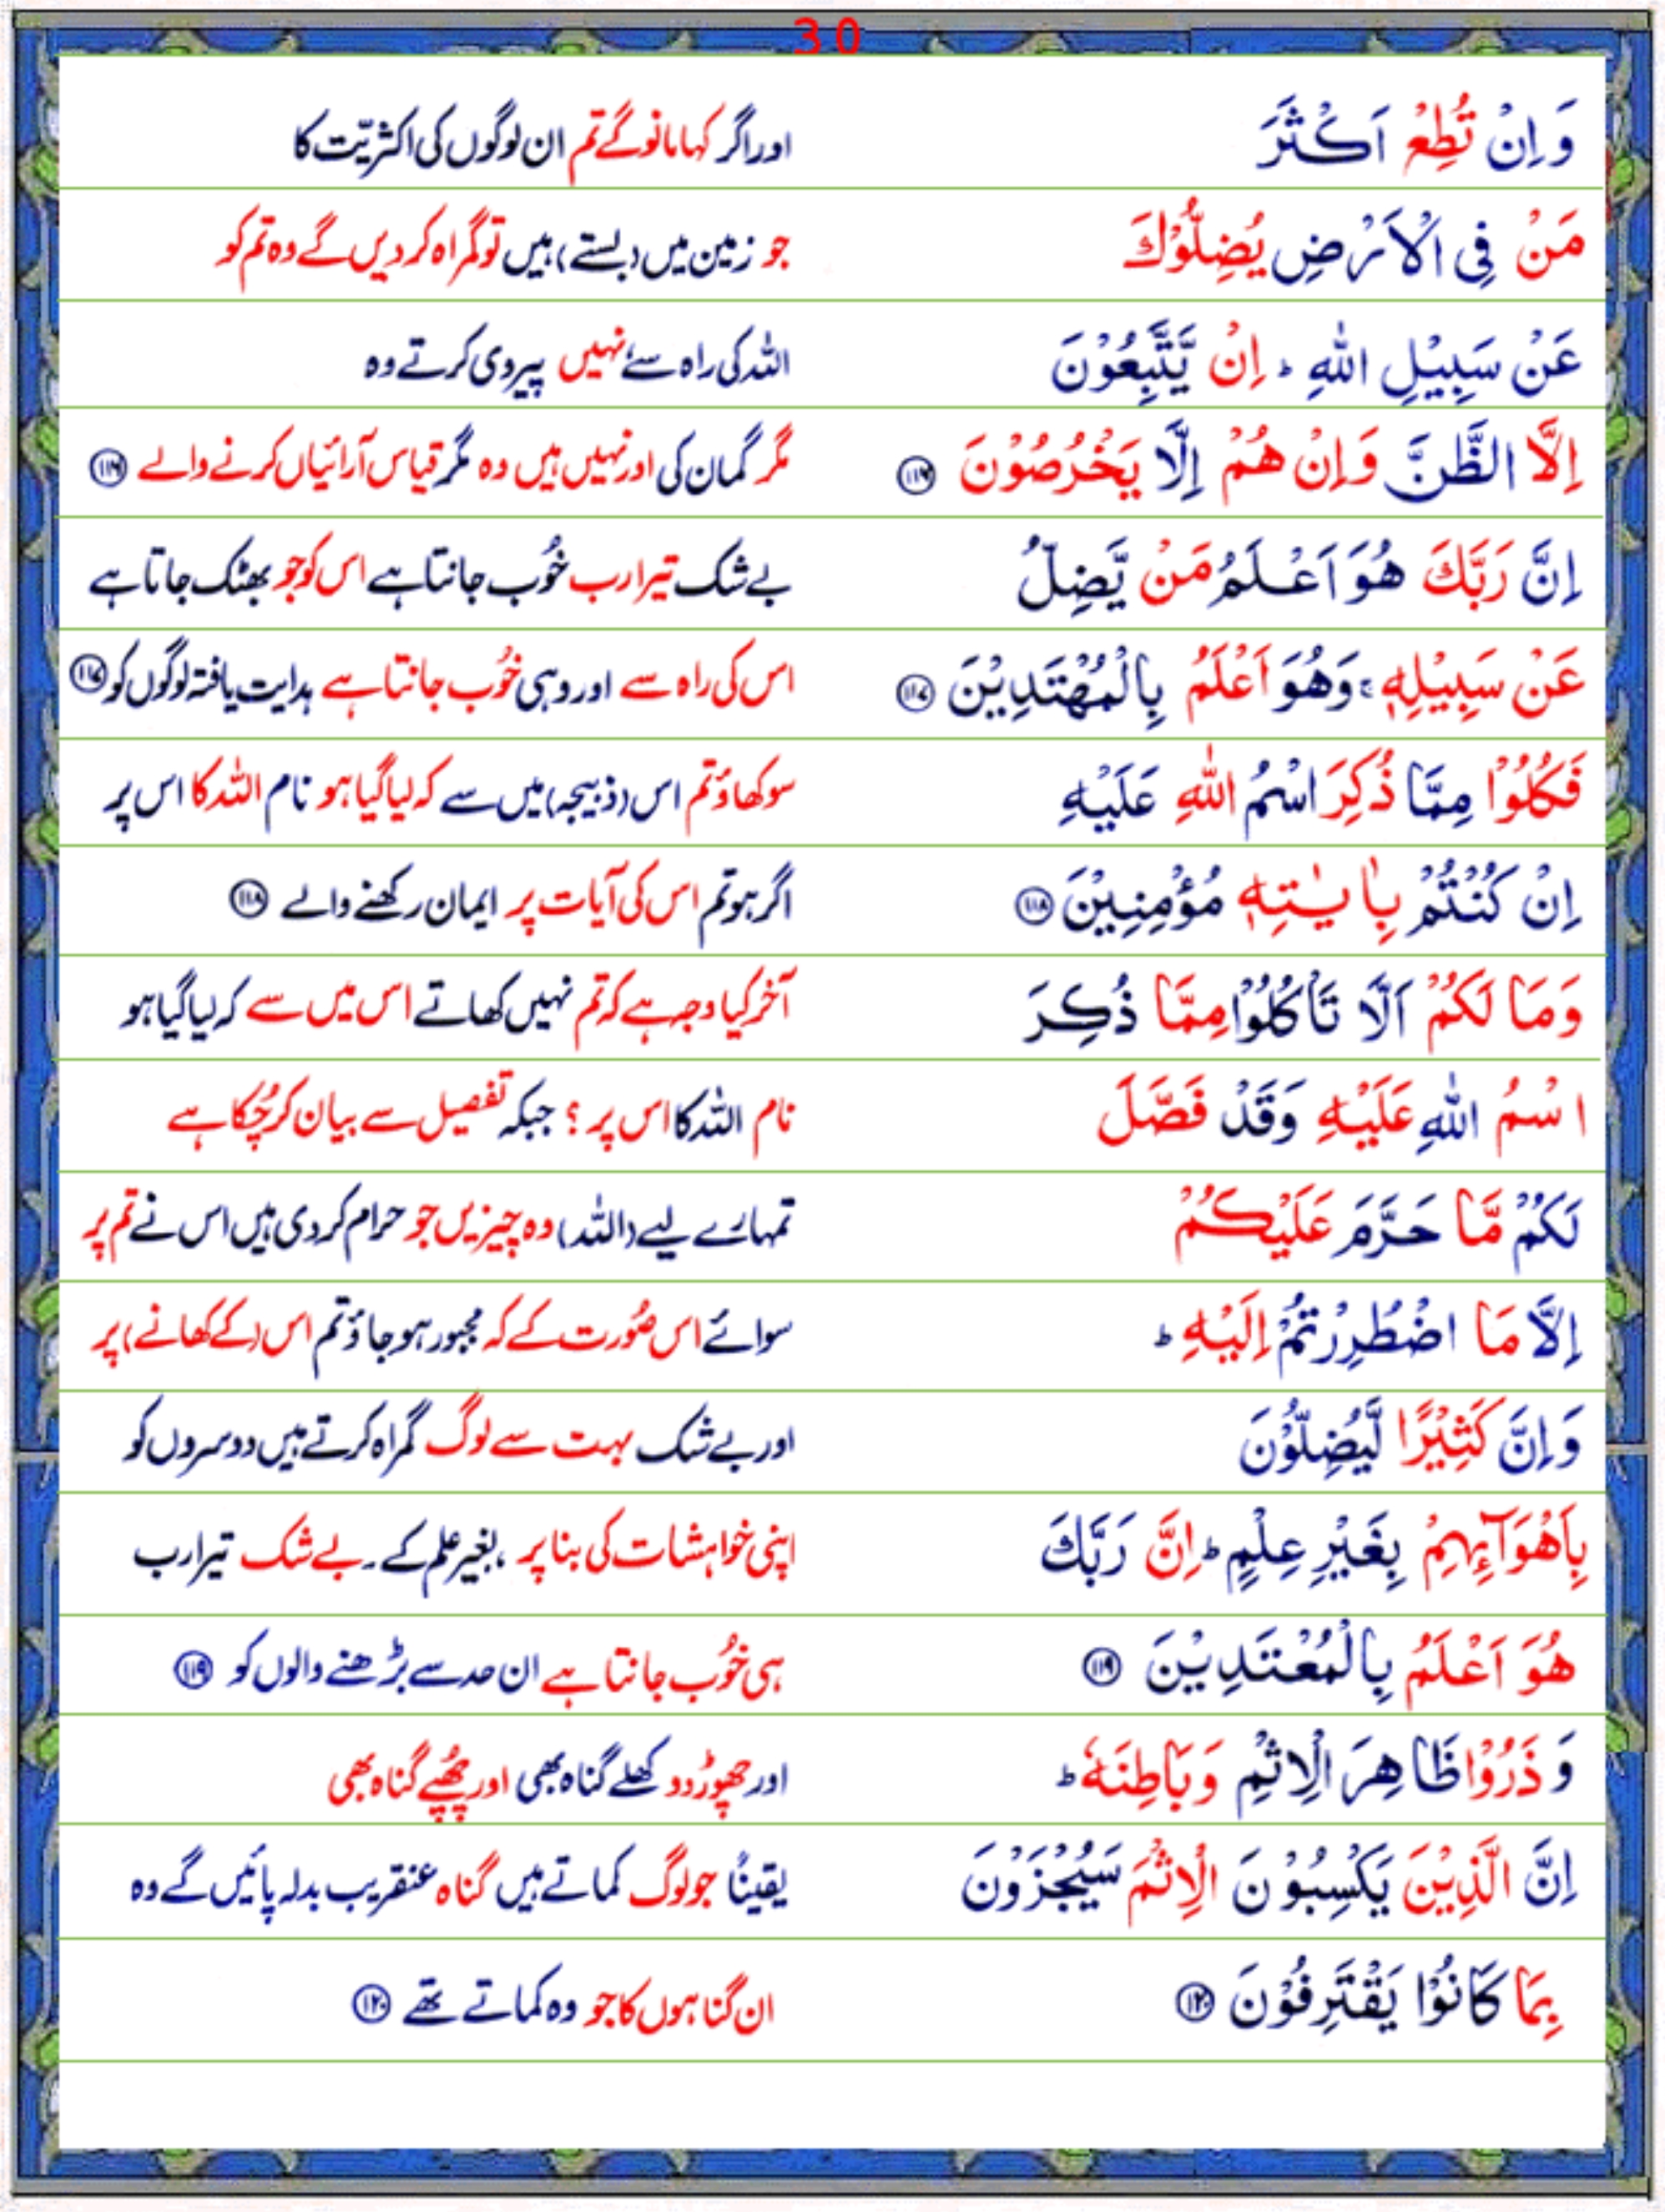 30
وَ اِنْ تُطِعْ اَكْثَرَ اور اگر کہا مانو گے تم ان لوگوں کی اکثریّت کا
مَنْ فِی الْاَرْضِ یُضِلُّوْكَ جو زمین میں (بستے) ہیں تو گمراہ کردیں گے وہ تم کو
عَنْ سَبِیْلِ اللّٰهِ ؕ اِنْ یَّتَّبِعُوْنَ اللہ کی راہ سے، نہیں پیروی کرتے وہ
اِلَّا الظَّنَّ وَ اِنْ هُمْ اِلَّا یَخْرُصُوْنَ ﴿۱۱۶﴾ مگر گمان کی اور نہیں ہیں وہ مگر قیاس آرائیاں کرنے والے ﴿۱۱۶﴾
اِنَّ رَبَّكَ هُوَ اَعْلَمُ مَنْ یَّضِلُّ بے شک تیرا رب خُوب جانتا ہے اس کو جو بھٹک جاتا ہے
عَنْ سَبِیْلِهٖ ۚ وَهُوَ اَعْلَمُ بِالْمُهْتَدِیْنَ ﴿۱۱۷﴾ اس کی راہ سے اور وہی خُوب جانتا ہے ہدایت یافتہ لوگوں کو ﴿۱۱۷﴾
فَكُلُوْا مِمَّا ذُكِرَ اسْمُ اللّٰهِ عَلَیْهِ سو کھاؤ تم اس (ذبیحہ) میں سے کہ لیا گیا ہو نام اللہ کا اس پر
اِنْ كُنْتُمْ بِاٰیٰتِهٖ مُؤْمِنِیْنَ ﴿۱۱۸﴾ اگر ہو تم اس کی آیات پر ایمان رکھنے والے ﴿۱۱۸﴾
وَمَا لَكُمْ اَلَّا تَاْكُلُوْا مِمَّا ذُكِرَ آخر کیا وجہ ہے کہ تم نہیں کھاتے اس میں سے کہ لیا گیا ہو
اسْمُ اللّٰهِ عَلَیْهِ وَقَدْ فَصَّلَ نام اللہ کا اس پر ؟ جبکہ تفصیل سے بیان کرچُکا ہے
لَكُمْ مَّا حَرَّمَ عَلَیْكُمْ تمہارے لیے (اللہ) وہ چیزیں جو حرام کردی ہیں اس نے تم پر
اِلَّا مَا اضْطُرِرْتُمْ اِلَیْهِ ؕ سوائے اس صُورت کے کہ مجبور ہوجاؤ تم اس (کے کھانے) پر
وَ اِنَّ كَثِیْرًا لَّیُضِلُّوْنَ اور بے شک بہت سے لوگ گمراہ کرتے ہیں دوسروں کو
بِاَهْوَآئِهِمْ بِغَیْرِ عِلْمٍ ؕ اِنَّ رَبَّكَ اپنی خواہشات کی بنا پر، بغیر علم کے۔ بے شک تیرا رب
هُوَ اَعْلَمُ بِالْمُعْتَدِیْنَ ﴿۱۱۹﴾ ہی خُوب جانتا ہے ان حد سے بڑھنے والوں کو ﴿۱۱۹﴾
وَ ذَرُوْا ظَاهِرَ الْاِثْمِ وَبَاطِنَهٗ ؕ اور چھوڑ دو کھلے گناہ بھی اور چُھپے گناہ بھی
اِنَّ الَّذِیْنَ یَكْسِبُوْنَ الْاِثْمَ سَیُجْزَوْنَ یقینًا جو لوگ کماتے ہیں گناہ عنقریب بدلہ پائیں گے وہ
بِمَا كَانُوْا یَقْتَرِفُوْنَ ﴿۱۲۰﴾ ان گناہوں کا جو وہ کماتے تھے ﴿۱۲۰﴾